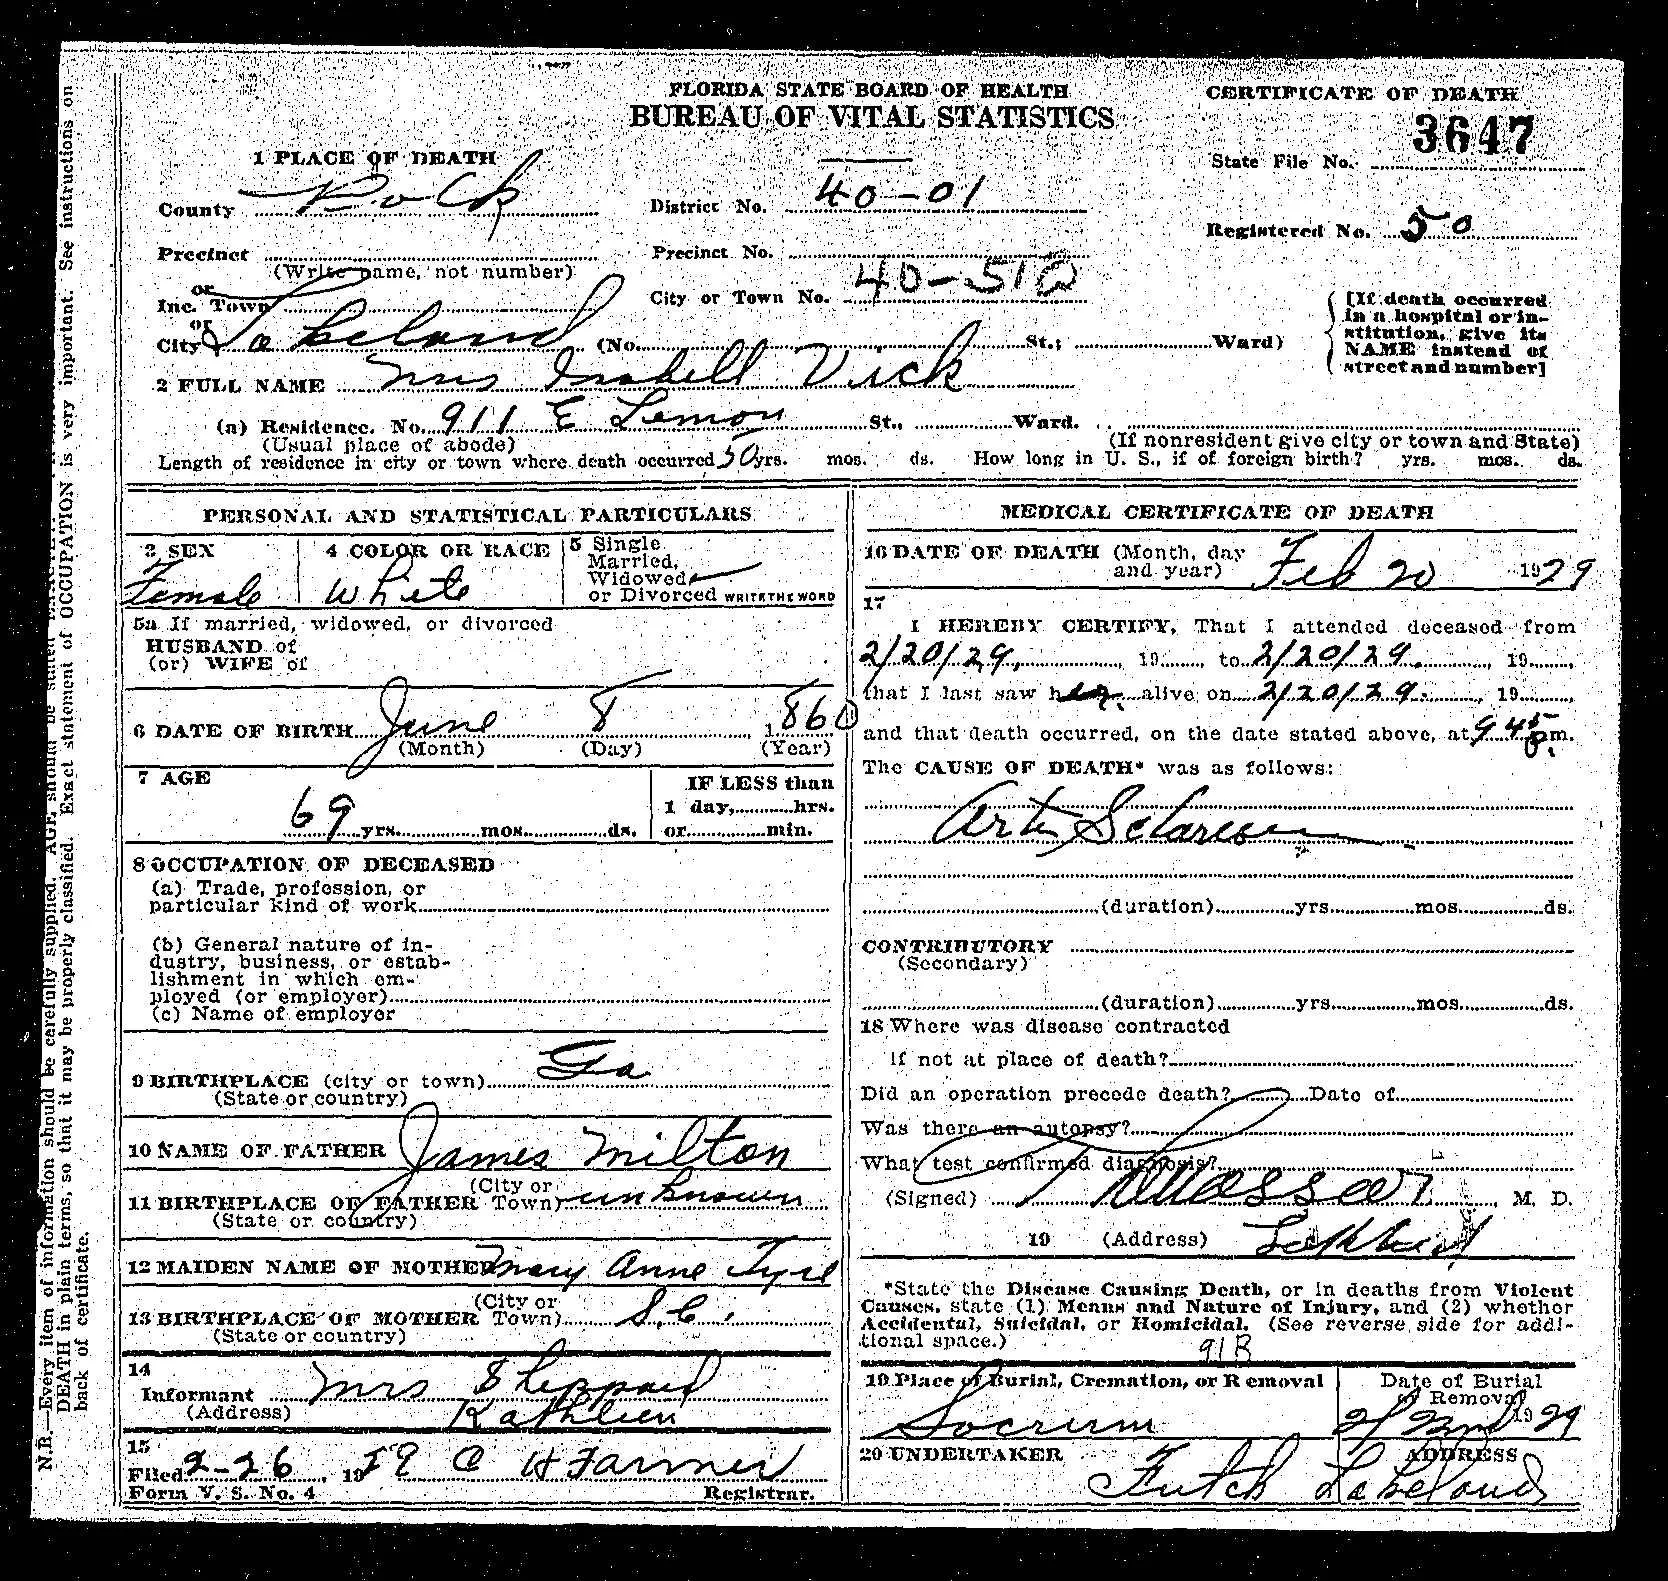 FLORIDA STATE BOARD OF HEALTH
BUREAU OF VITAL STATISTICS
CERTIFICATE OF DEATH
3647
State File No.
1 PLACE OF DEATH
County Polk
District No. 40-01
Registered No. 50
Precinct
(Write name, not number)
Precinct No.
or
Inc. Town
City or Town No. 40-51
or
City Lakeland (No. St.; Ward)
[If death occurred
in a hospital or in-
stitution, give its
NAME instead of
street and number]
2 FULL NAME Mrs Isabell Vick
(a) Residence. No. 911 E Lemon St., Ward.
(Usual place of abode)
(If nonresident give city or town and State)
Length of residence in city or town where death occurred 50 yrs. mos. ds. How long in U. S., if of foreign birth? yrs. mos. ds.
PERSONAL AND STATISTICAL PARTICULARS
3 SEX
Female
4 COLOR OR RACE
White
5 Single
Married,
Widowed
or Divorced WRITE THE WORD
5a If married, widowed, or divorced
HUSBAND of
(or) WIFE of
6 DATE OF BIRTH June 8 1860
(Month) (Day) (Year)
7 AGE
69 yrs. mos. ds.
IF LESS than
1 day, hrs.
or min.
8 OCCUPATION OF DECEASED
(a) Trade, profession, or
particular kind of work
(b) General nature of in-
dustry, business, or estab-
lishment in which em-
ployed (or employer)
(c) Name of employer
9 BIRTHPLACE (city or town) Ga
(State or country)
10 NAME OF FATHER James Milton
11 BIRTHPLACE OF FATHER (City or Town) unknown
(State or country)
12 MAIDEN NAME OF MOTHER Mary Anne Tyre
13 BIRTHPLACE OF MOTHER (City or Town) S.C.
(State or country)
14
Informant Mrs Sheppard
(Address) Kathleen
15
Filed 2-26, 1929 C H Farmer
Form V. S. No. 4 Registrar.
MEDICAL CERTIFICATE OF DEATH
16 DATE OF DEATH (Month, day
and year) Feb 20 1929
17
I HEREBY CERTIFY, That I attended deceased from
2/20/29, 19 , to 2/20/29, 19 ,
that I last saw her alive on 2/20/29, 19 ,
and that death occurred, on the date stated above, at 9 45 p.m.
The CAUSE OF DEATH* was as follows:
(duration) yrs. mos. ds.
CONTRIBUTORY
(Secondary)
(duration) yrs. mos. ds.
18 Where was disease contracted
if not at place of death?
Did an operation precede death? Date of
Was there an autopsy?
What test confirmed diagnosis?
(Signed) , M. D.
19 (Address) Lakeland
*State the Disease Causing Death, or in deaths from Violent
Causes, state (1) Means and Nature of Injury, and (2) whether
Accidental, Suicidal, or Homicidal. (See reverse side for addi-
tional space.)
91B
19 Place of Burial, Cremation, or Removal
Socrum
Date of Burial
or Removal
2/22nd 1929
20 UNDERTAKER
Futch
ADDRESS
Lakeland
N.B.—Every item of information should be carefully supplied. AGE should be stated EXACTLY.
DEATH in plain terms, so that it may be properly classified. Exact statement of OCCUPATION is very important. See instructions on
back of certificate.